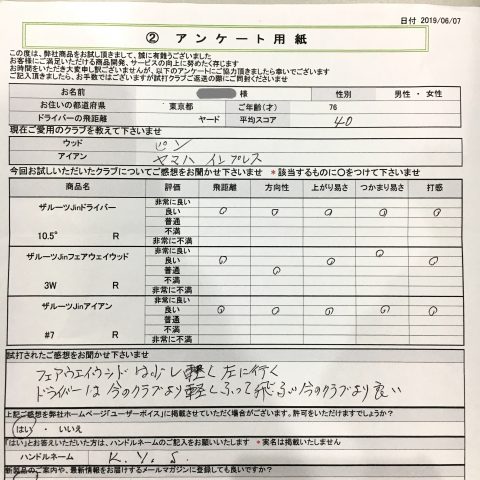 日付 2019/06/07
② アンケート用紙
この度は、弊社商品をお試し頂きまして、誠に有難うございました
お客様にご満足いただける商品開発、サービスの向上に努めたく存じます
お時間をいただき大変申し訳ございませんが、以下のアンケートにご協力頂きましたら幸いでございます
ご記入頂きましたら、お手数ではございますが試打クラブご返送の際にご同封くださいませ
お名前 様 性別 男性 ・ 女性
お住いの都道府県 東京都 ご年齢(才) 76
ドライバーの飛距離 ヤード 平均スコア 40
現在ご愛用のクラブを教えて下さいませ
ウッド ピン
アイアン ヤマハ インプレス
今回お試しいただいたクラブについてご感想をお聞かせ下さいませ *該当するものに〇をつけて下さいませ
商品名 評価 飛距離 方向性 上がり易さ つかまり易さ 打感
ザルーツJinドライバー
10.5° R
非常に良い
良い 〇 〇 〇 〇 〇
普通
不満
非常に不満
ザルーツJinフェアウェイウッド
3W R
非常に良い 〇
良い 〇 〇 〇
普通 〇
不満
非常に不満
ザルーツJinアイアン
#7 R
非常に良い
良い 〇 〇 〇 〇 〇
普通
不満
非常に不満
試打されたご感想をお聞かせ下さいませ
フェアウエイウッドは少し軽く左に行く
ドライバーは今のクラブより軽くふって飛ぶ 今のクラブより良い
上記ご感想を弊社ホームページ「ユーザーボイス」に掲載させていただく場合がございます。許可をいただけますでしょうか?
はい ・ いいえ
「はい」とお答えいただいた方は、ハンドルネームのご記入をお願いいたします *実名は掲載いたしません
ハンドルネーム K. Y. S.
新製品のご案内や、最新情報をお届けするメールマガジンに登録しても良いですか?